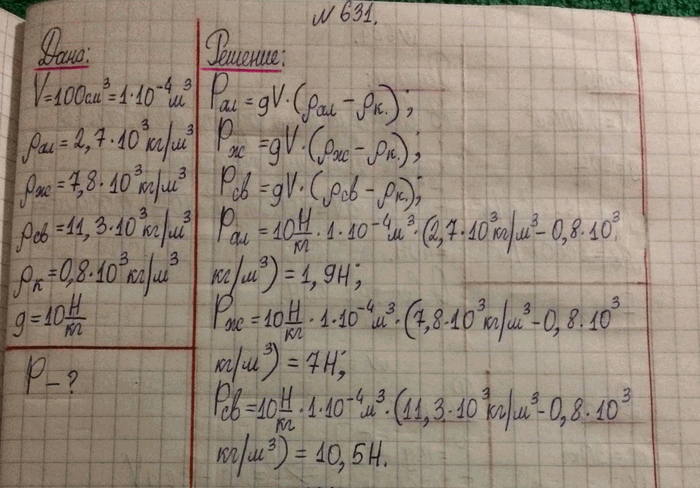 № 631.
Дано:
V=100см³=1·10⁻⁴м³
ρал=2,7·10³кг/м³
ρж=7,8·10³кг/м³
ρсв=11,3·10³кг/м³
ρк=0,8·10³кг/м³
g=10 Н/кг
P-?
Решение:
Pал=gV·(ρал-ρк.);
Pж=gV·(ρж-ρк.);
Pсв=gV·(ρсв-ρк.);
Pал=10 Н/кг·1·10⁻⁴м³·(2,7·10³кг/м³-0,8·10³
кг/м³)=1,9Н;
Pж=10 Н/кг·1·10⁻⁴м³·(7,8·10³кг/м³-0,8·10³
кг/м³)=7Н;
Pсв=10 Н/кг·1·10⁻⁴м³·(11,3·10³кг/м³-0,8·10³
кг/м³)=10,5Н.